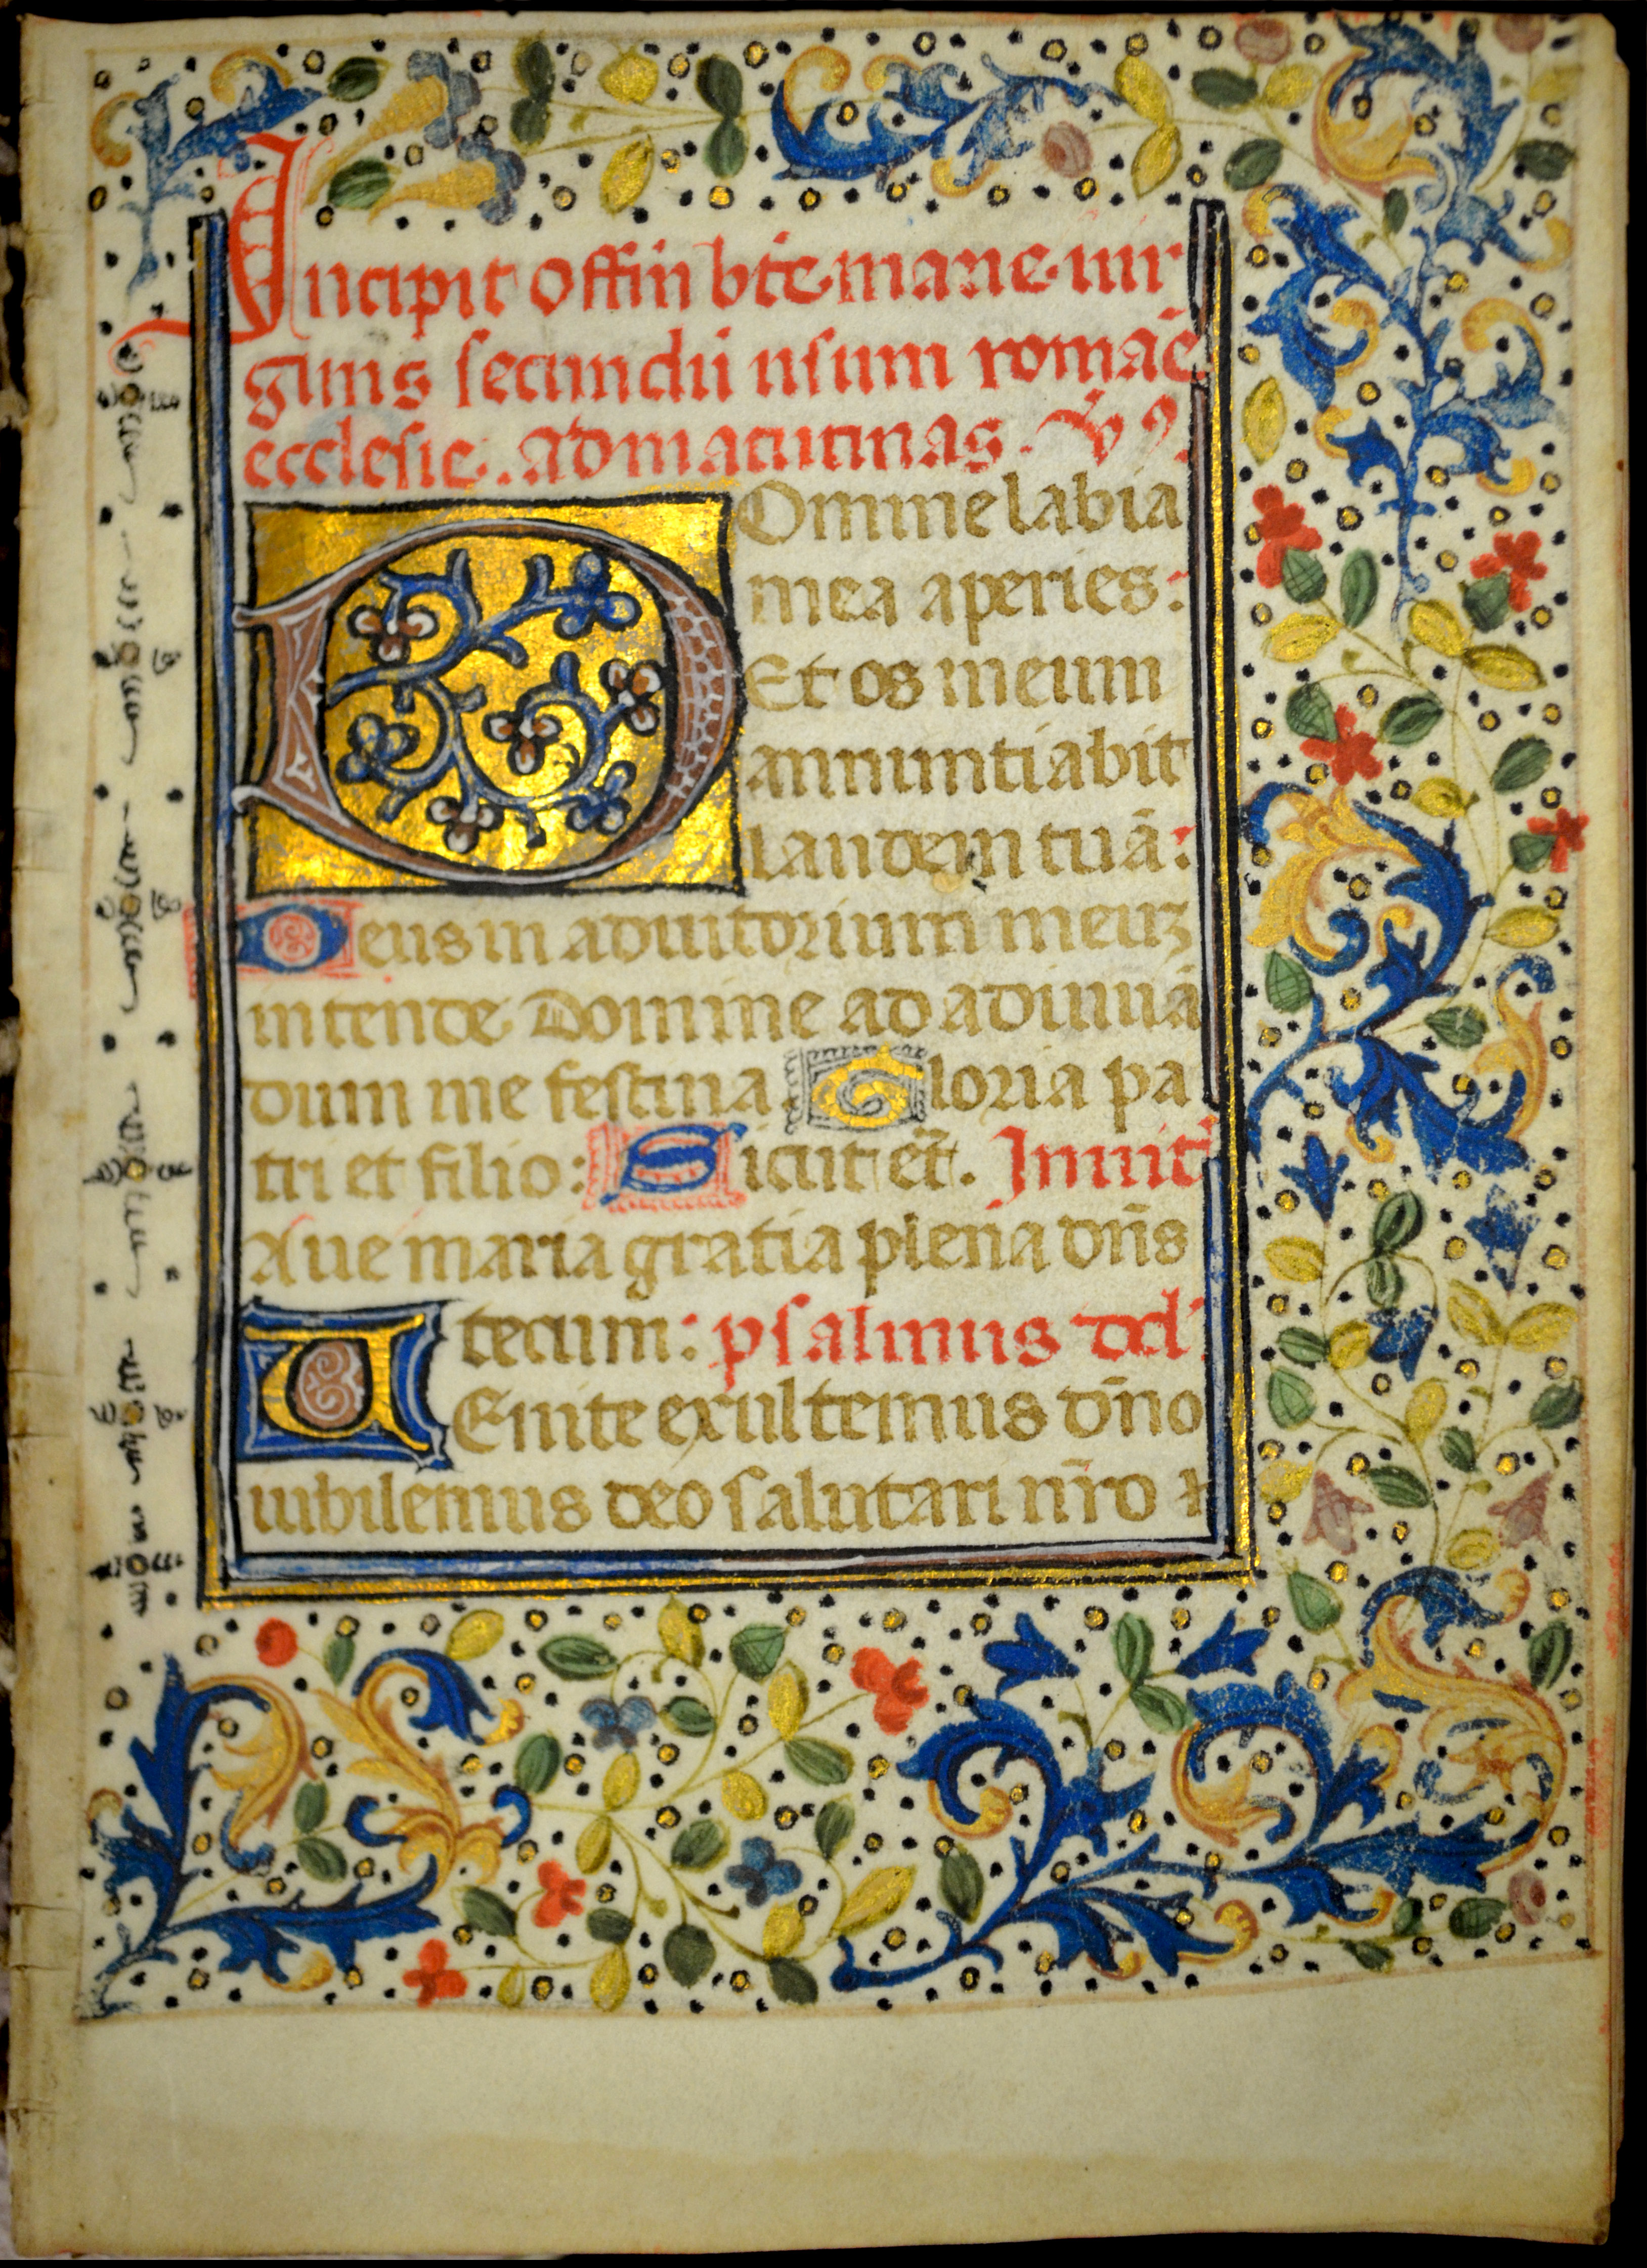 Incipit offm̄ bt̄e marie uir
ginis secundū usum romāe
ecclesie. ad matutinas.
Domine labia
mea aperies:
Et os meum
annuntiabit
laudem tuā:
Deus in adiutorium meuʒ
intende Domine ad adiuuā
dum me festina. Gloria pa
tri et filio: Sicut er̄t. Inuit̄
Aue maria gratia plena dn̄s
tecum: psalmus dd'
Uenite exultemus dn̄o
iubilemus deo salutari nr̄o ⁊